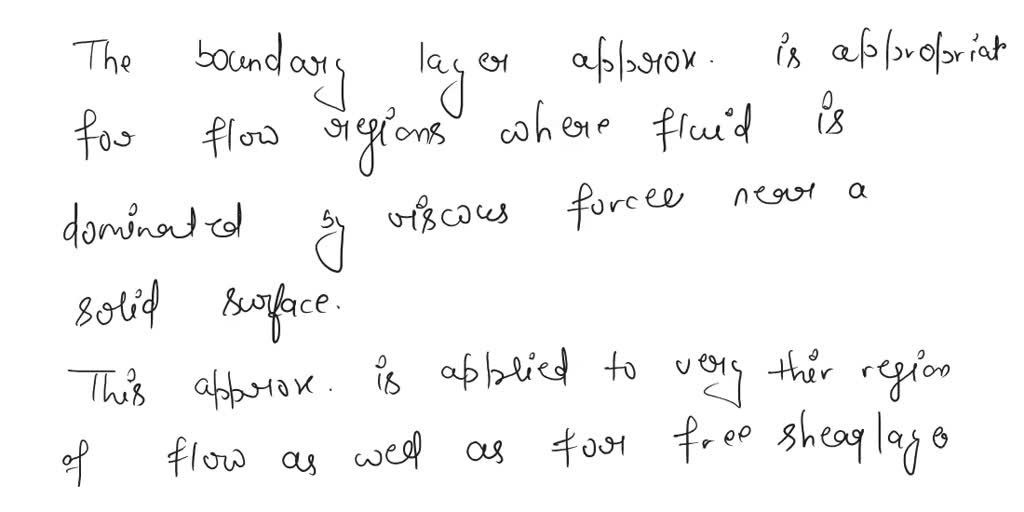 The boundary layer approx. is appropriat
for flow regions where fluid is
dominated by viscous forces near a
solid surface.
This approx. is applied to very thin region
of flow as well as for free shear laye